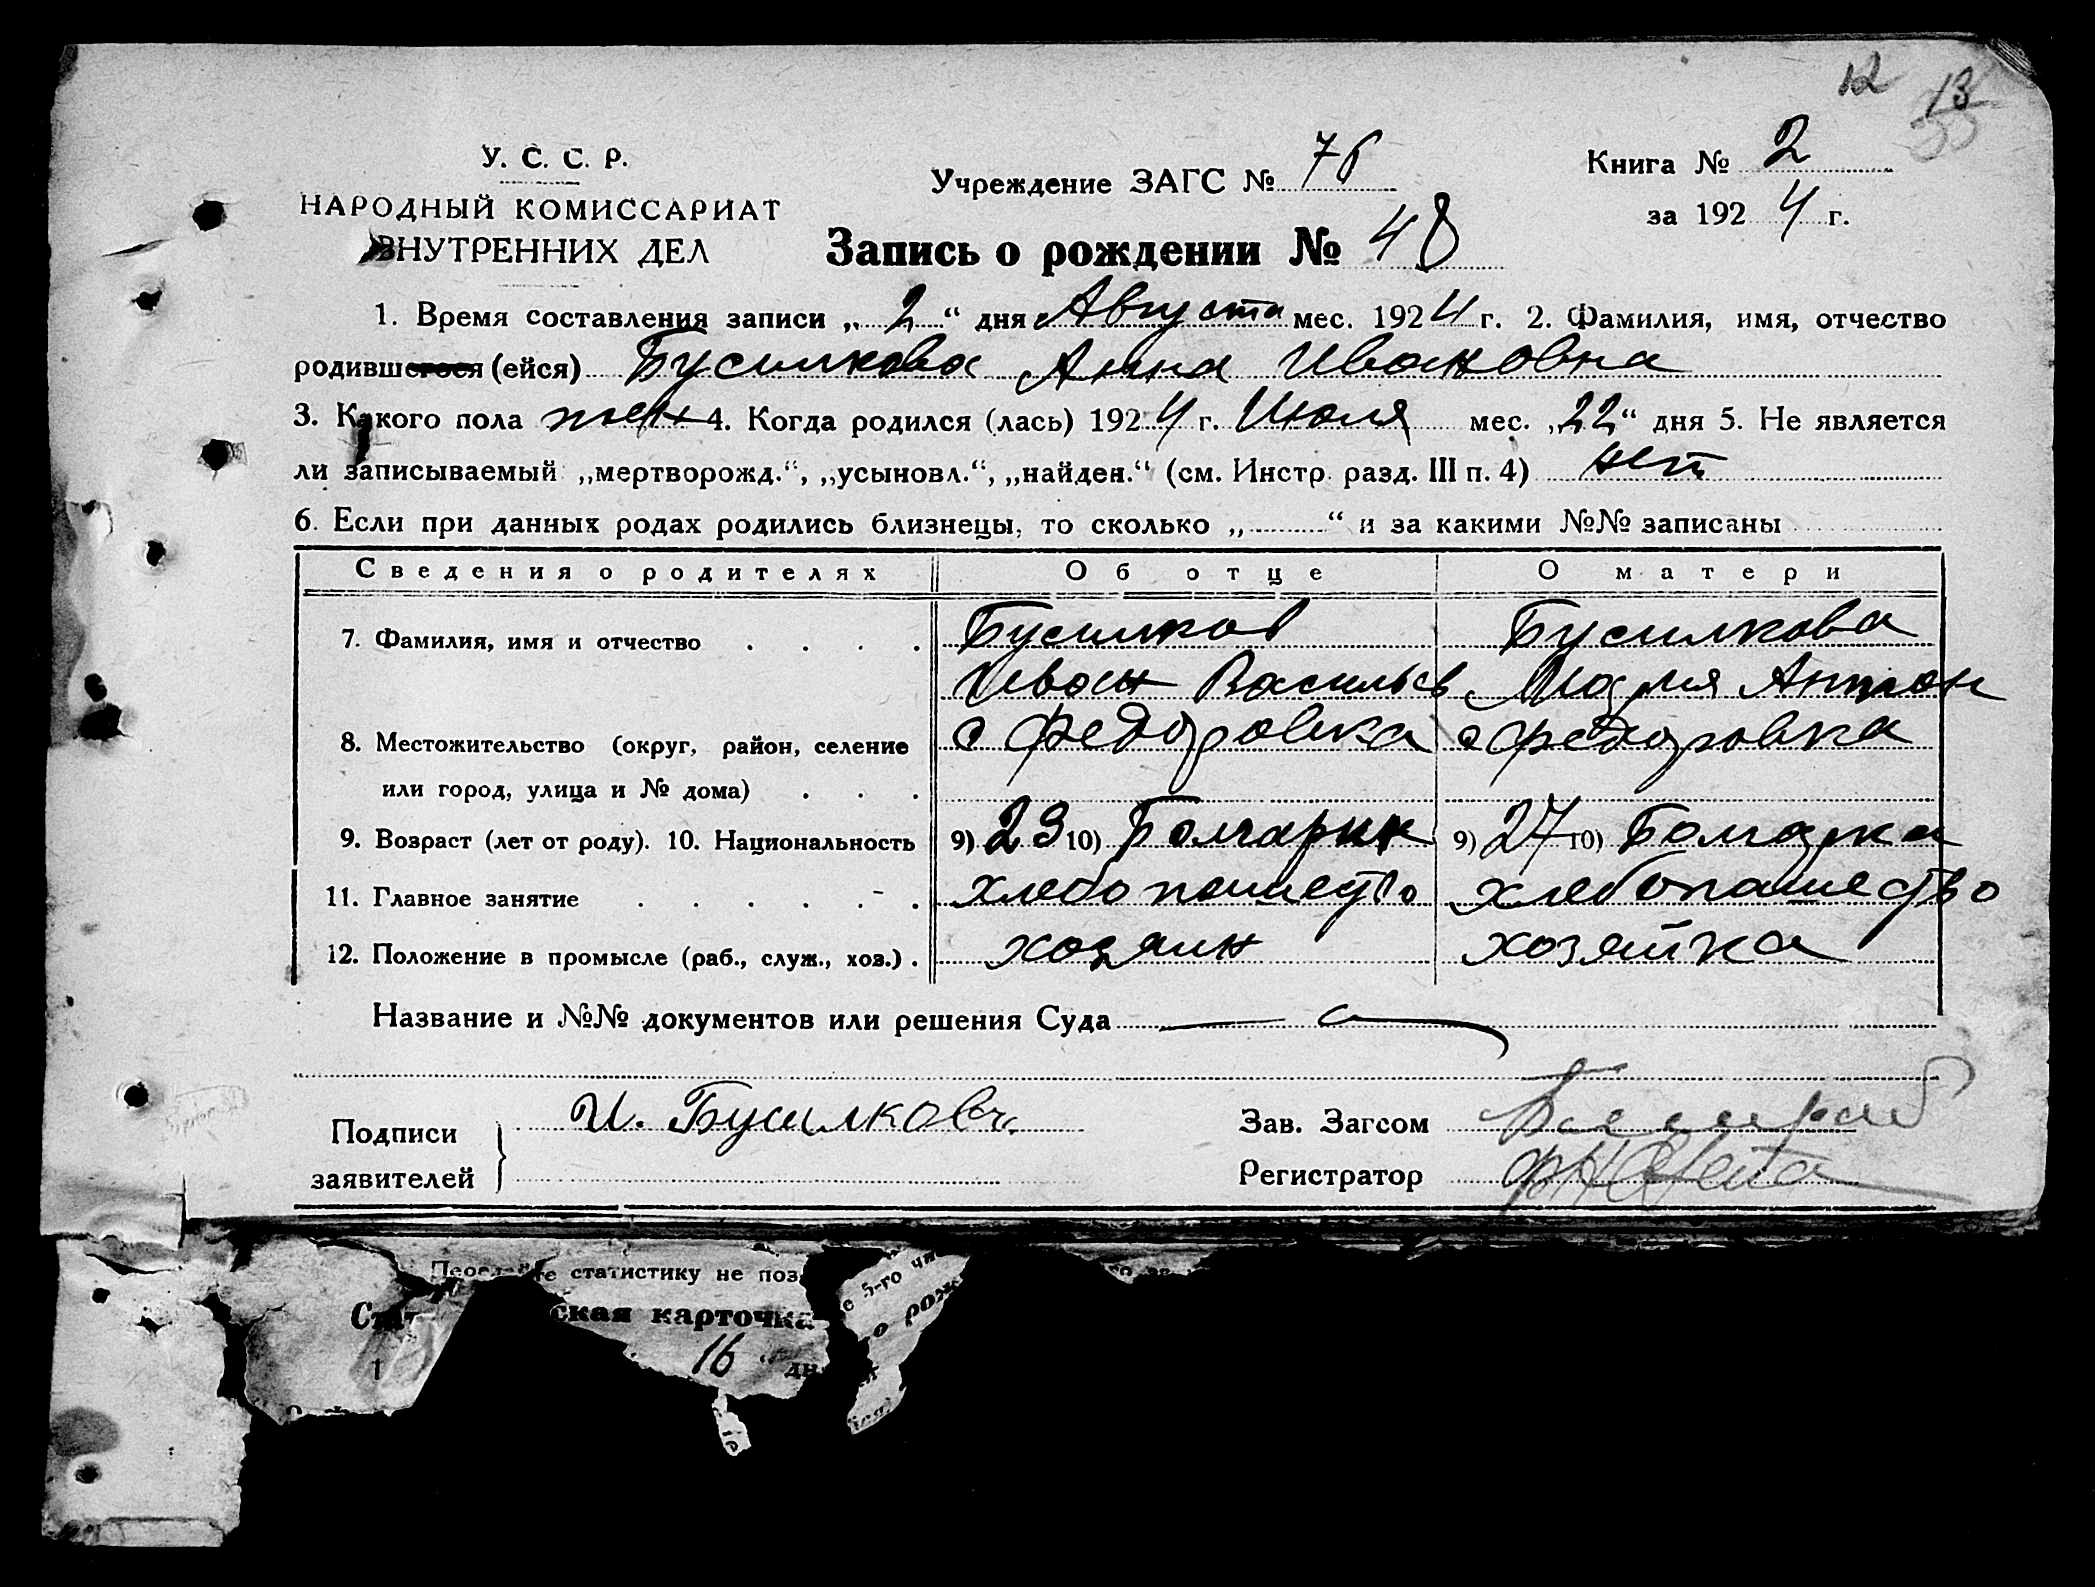 12 13
У. С. С. Р.
НАРОДНЫЙ КОМИССАРИАТ
ВНУТРЕННИХ ДЕЛ
Учреждение ЗАГС №
Книга № 2
за 1924 г.
Запись о рождении № 48
1. Время составления записи „2“ дня Августа мес. 1924 г. 2. Фамилия, имя, отчество
родившегося (ейся) Бусилкова Анна Ивановна
3. Какого пола жен 4. Когда родился (лась) 1924 г. Июля мес. „22“ дня 5. Не является
ли записываемый „мертворожд.“, „усыновл.“, „найден.“ (см. Инстр. разд. III п. 4) нет
6. Если при данных родах родились близнецы, то сколько „ “ и за какими №№ записаны
Сведения о родителях Об отце О матери
7. Фамилия, имя и отчество Бусилков Бусилкова
Иван Васильев Мария Антон
8. Местожительство (округ, район, селение с Федоровка с Федоровка
или город, улица и № дома)
9. Возраст (лет от роду). 10. Национальность 9) 23 10) Болгарин 9) 27 10) Болгарка
11. Главное занятие хлебопашество хлебопашество
12. Положение в промысле (раб., служ., хоз.) хозяин хозяйка
Название и №№ документов или решения Суда —
Подписи
заявителей
И. Бусилков
Зав. Загсом
Регистратор
статистику не поз
ская карточка
16 “ дн
1
е 5-го чи
о рож